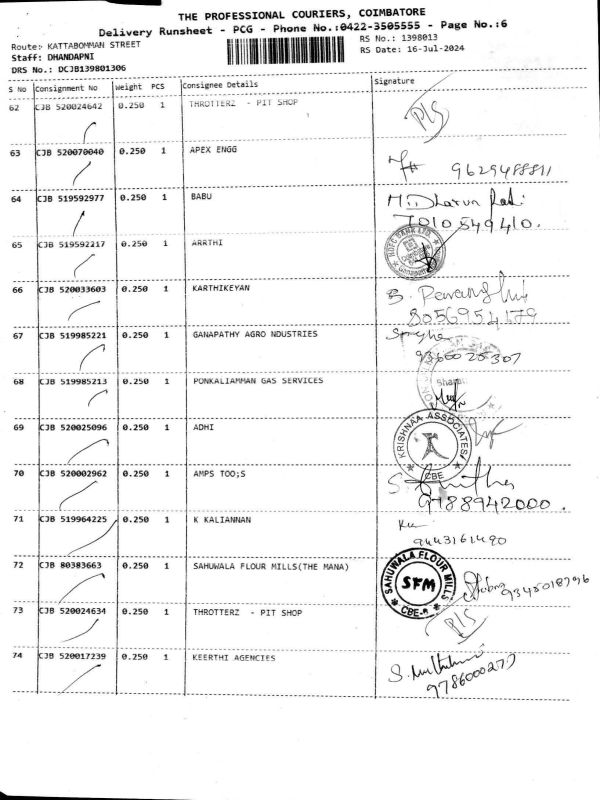 THE PROFESSIONAL COURIERS, COIMBATORE
Delivery Runsheet - PCG - Phone No.:0422-3505555 - Page No.:6
Route:- KATTABOMMAN STREET
RS No.: 1398013
Staff: DHANDAPNI
RS Date: 16-Jul-2024
DRS No.: DCJB139801306
S No Consignment No Weight PCS Consignee Details Signature
62 CJB 520024642 0.250 1 THROTTERZ - PIT SHOP
PLS
63 CJB 520070040 0.250 1 APEX ENGG
9629488811
64 CJB 519592977 0.250 1 BABU
7010549410.
65 CJB 519592217 0.250 1 ARRTHI
HDFC BANK LTD.
66 CJB 520033603 0.250 1 KARTHIKEYAN
8056954179
67 CJB 519985221 0.250 1 GANAPATHY AGRO NDUSTRIES
9360025307
68 CJB 519985213 0.250 1 PONKALIAMMAN GAS SERVICES
69 CJB 520025096 0.250 1 ADHI
KRISHNAA ASSOCIATES
CBE
70 CJB 520002962 0.250 1 AMPS TOO;S
9788942000.
71 CJB 519964225 0.250 1 K KALIANNAN
9443161490
72 CJB 80383663 0.250 1 SAHUWALA FLOUR MILLS(THE MANA)
SAHUWALA FLOUR MILLS
SFM
CBE
9345018796
73 CJB 520024634 0.250 1 THROTTERZ - PIT SHOP
PLS
74 CJB 520017239 0.250 1 KEERTHI AGENCIES
9786000277